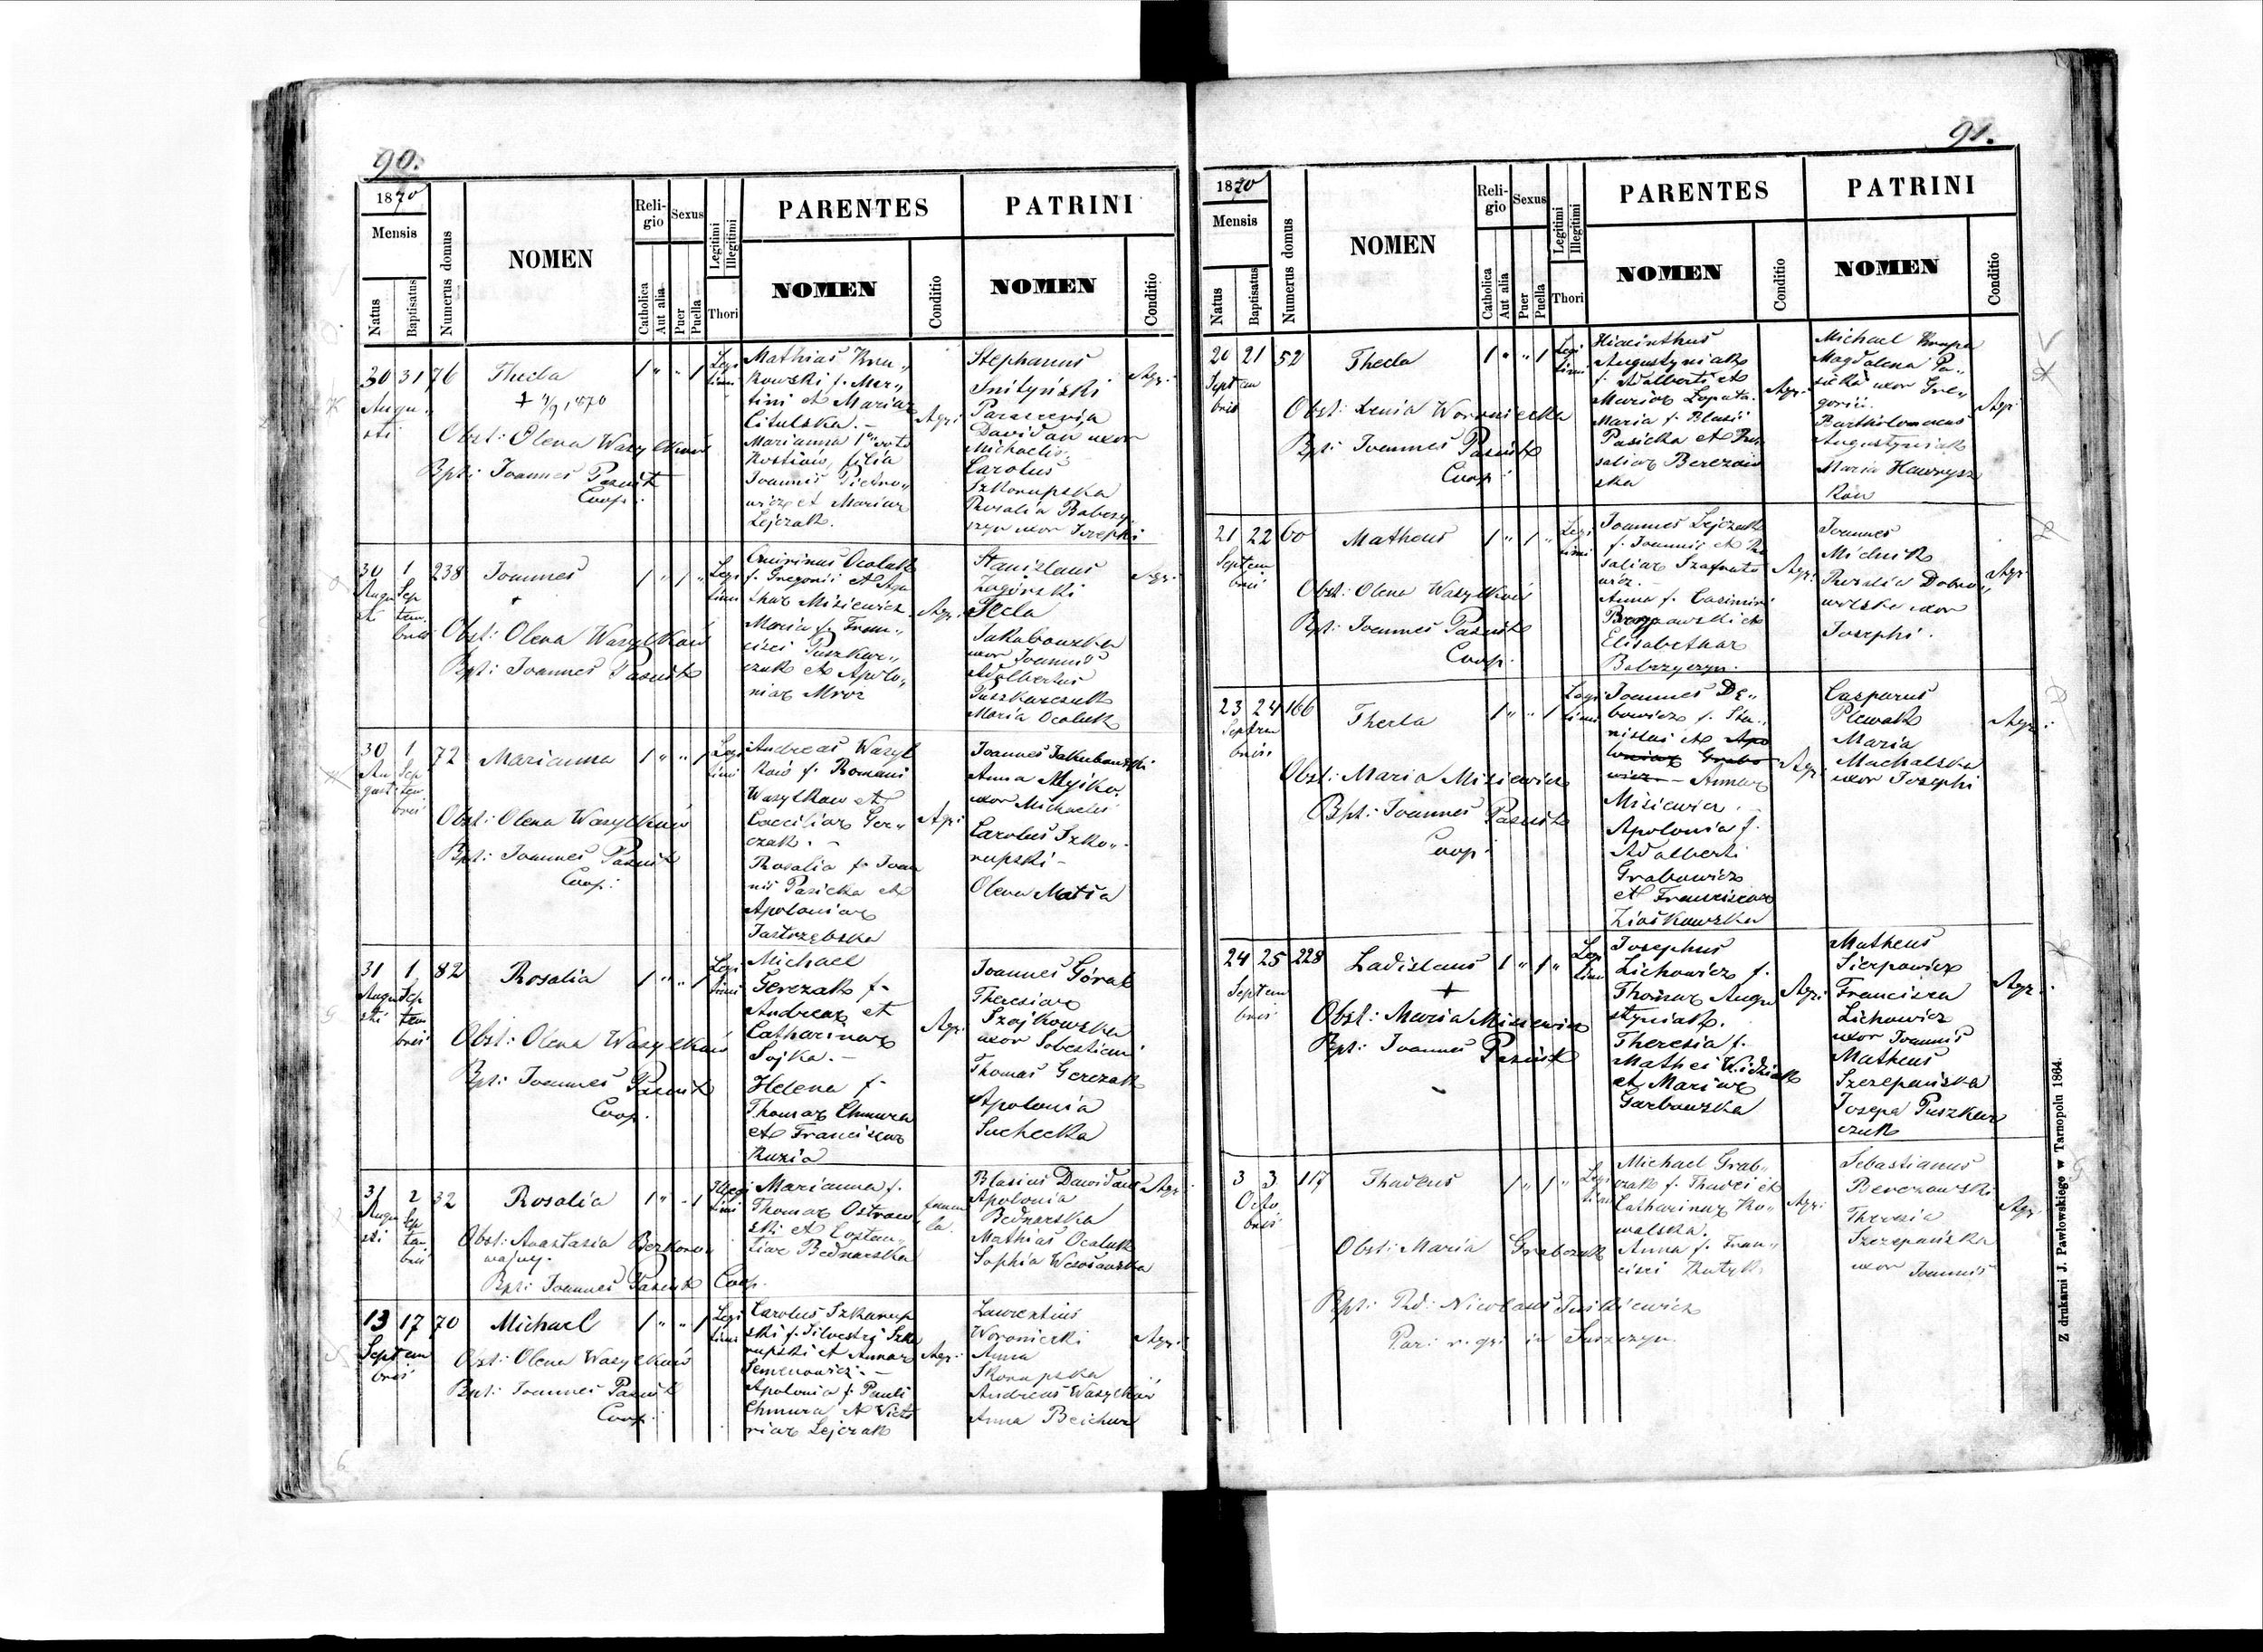 90.
1870
Mensis
Natus
Baptisatus
Numerus domus
NOMEN
Religio
Catholica
Aut alia
Sexus
Puer
Puella
Legitimi
Illegitimi
Thori
PARENTES
NOMEN
Conditio
PATRINI
NOMEN
Conditio
30 31 76 Thecla
Augusti
Obst: Olena Wasylków
Bpt: Joannes Pasiut
Coop:
Legitimi
Mathias Kru„
kowski f. Mar„
tini et Mariae
Citulska. –
Marianna 1º voto
Kostiów, filia
Joannis Pietro„
wicz et Mariae
Lejczak.
Agri:
Stephanus
Snityński
Parascevia
Davidan uxor
Michaelis.
Carolus
Szkorupska
Rosalia Babczy„
czyn uxor Josephi
Agr:
30 1 238 Joannes
Augusti
Septembris
Obst: Olena Wasylków
Bpt: Joannes Pasiut
Legitimi
Quirinus Ocaluk
f. Gregorii et Aga
thae Misiewicz
Maria f. Fran„
cisci Puszkar„
czuk et Apolo„
niae Mroz
Agr:
Stanislaus
Zagórski
Tecla
Jakubowska
uxor Joannis
Adalbertus
Puszkarczuk
Maria Ocaluk
Agr:
30 1 72 Marianna
Augusti
Septembris
Obst: Olena Wasylków
Bpt: Joannes Pasiut
Coop:
Legitimi
Andreas Wasyl
ków f. Romani
Wasylkow et
Caeciliae Ger„
czak. –
Rosalia f. Joan
nis Pasicka et
Apoloniae
Jastrzębska
Agri
Joannes Jakubowski
Anna
uxor Michaelis
Carolus Szko„
rupski –
Olena Matia
31 1 82 Rosalia
Augusti
Septembris
Obst: Olena Wasylków
Bpt: Joannes Pasiut
Coop:
Legitimi
Michael
Gerczak f.
Andreae et
Catharinae
Sojka. –
Helena f.
Thomae Chmura
et Franciscae
Kuzia
Agr:
Joannes Góral
Theresiae
Szojkowska
uxor Sebastiani
Thomas Gerczak
Apolonia
Suchecka
31 2 32 Rosalia
Augusti
Septembris
Obst: Anastasia
Bpt: Joannes Pasiut Coop.
Illegitimi
Marianna f.
Thomae Ostrow
ski et Costan„
tiae Bednarska
famula.
Blasius Dawidan
Apolonia
Bednarska
Mathias Ocaluk
Sophia Wesołowska
Agr:
13 17 70 Michael
Septembris
Obst: Olena Wasylków
Bpt: Joannes Pasiut
Coop:
Legitimi
Carolus Szkorup
ski f. Silvestri Szko
rupski et Annae
Semenowicz. –
Apolonia f. Pauli
Chmura et Victo
riae Lejczak
Agr:
Laurentius
Woroniecki
Anna
Skorupska
Andreas Wasylków
Anna
Agr:
91.
1870
Mensis
Natus
Baptisatus
Numerus domus
NOMEN
Religio
Catholica
Aut alia
Sexus
Puer
Puella
Legitimi
Illegitimi
Thori
PARENTES
NOMEN
Conditio
PATRINI
NOMEN
Conditio
20 21 52 Thecla
Septembris
Obst: Xenia Woroniecka
Bpt: Joannes Pasiut
Coop:
Legitimi
Hiacinthus
Augustyniak
f. Adalberti et
Mariae Łopata.
Maria f. Blasii
Pasicka et Ro
saliae Berezow
ska
Agr:
Michael Krupa
Magdalena Pa„
sicka uxor Gre„
gorii.
Bartholomaeus
Augustyniak
Maria Hawrysz
ków
Agr:
21 22 60 Matheus
Septembris
Obst: Olena Wasylków
Bpt: Joannes Pasiut
Coop:
Legitimi
Joannes Lejczak
f. Joannis et Ro
saliae
Anna f. Casimiri
et
Elisabethae
Babczyczyn.
Agr:
Joannes
Michnik
Rosalia Dobro„
wolska uxor
Josephi.
Agr:
23 24 166 Thecla
Septembris
Obst: Maria Misiewicz
Bpt: Joannes Pasiut
Coop:
Legitimi
Joannes Dę„
bowicz f. Sta„
nislai et Apo
loniae Grabo
wicz – Annae
Misiewicz. –
Apolonia f.
Adalberti
Grabowicz
et Franciscae
Ziołkowska
Agr:
Casparus
Plewak
Maria
Machalska
uxor Josephi
Agr:
24 25 228 Ladislaus
Septembris
Obst: Maria Misiewicz
Bpt: Joannes Pasiut
Legitimi
Josephus
Lichowicz f.
Thomae Augu
styniak.
Theresia f.
Mathei
et Mariae
Garbowska
Agr:
Matheus
Sierpowicz
Francisca
Lichowicz
uxor Joannis
Matheus
Szczepańska
Josepa Puszkar
czuk
Agr:
3 3 117 Thadeus
Octobris
Obst: Maria Grabczak
Bpt: Rd: Nicolaus
Par: r. gr: in Suszczyn.
Legitimi
Michael Grab„
czak f. Thadei et
Catharinae Ko„
walska.
Anna f. Fran„
cisci
Agr:
Sebastianus
Berezowski
Theresia
Szczepańska
uxor Joannis
Agr:
Z drukarni J. Pawłowskiego w Tarnopolu 1864.